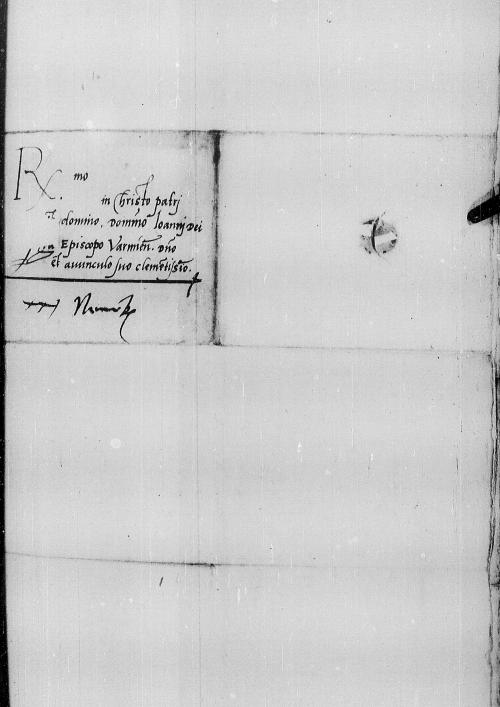 Rx. mo
in Christo patri
et domino, domino Ioanni Dei
gra Episcopo Varmien. dno
et avunculo suo clementissimo.